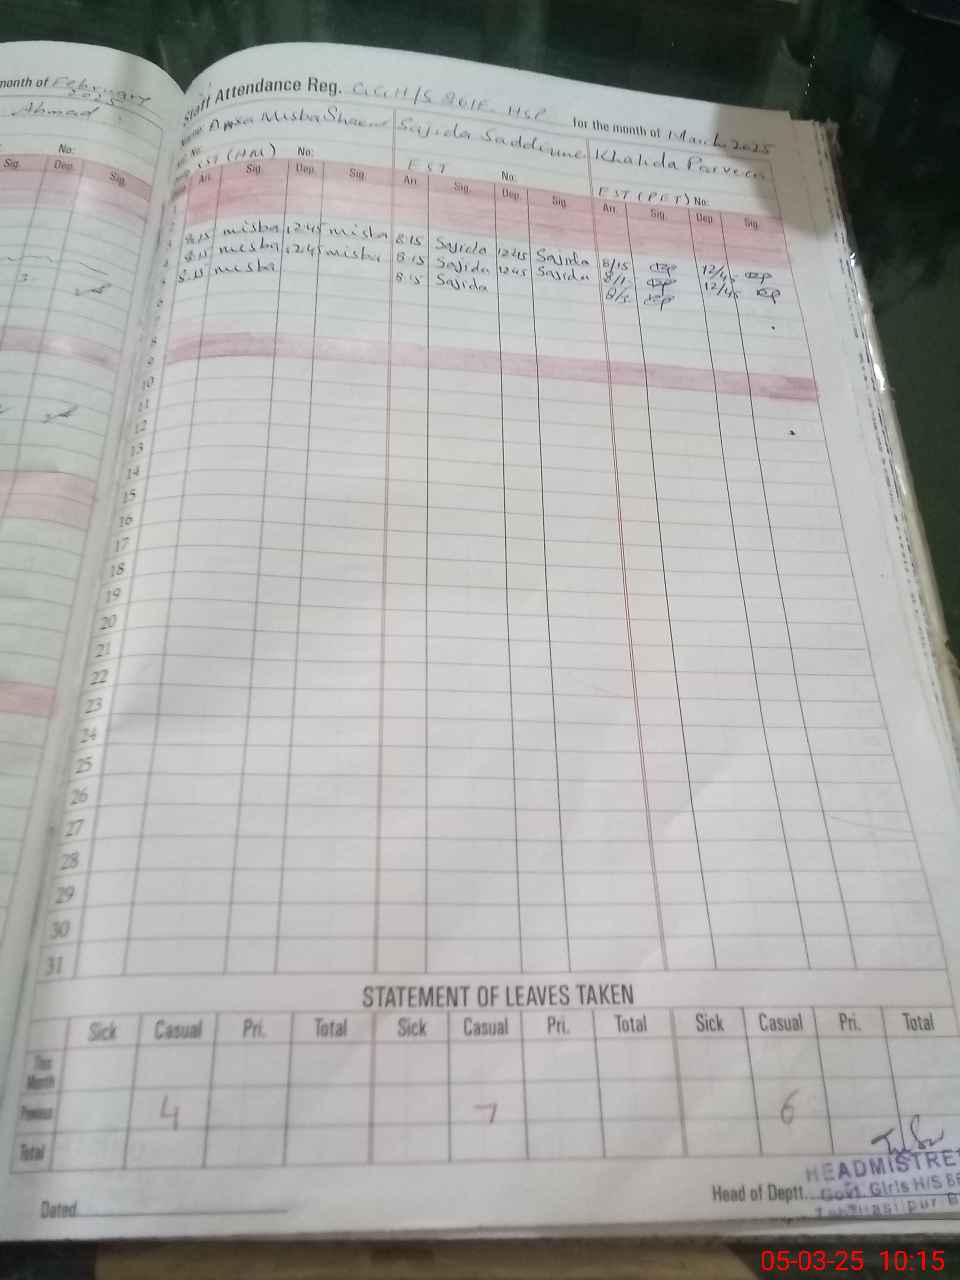 month of February
2025
Ahmad
No:
Sig. Dep. Sig.
3
Staff Attendance Reg. G.G.H/S 861F HSP for the month of March 2025
Name: Misba Sajida Khalida Parveen
EST (HM) No: EST No: EST (PET) No:
Arr. Sig. Dep. Sig. Arr. Sig. Dep. Sig. Arr. Sig. Dep. Sig.
1
2
3 8:15 misba 1245 misba 8:15 Sajida 1245 Sajida 8/15 12/45
4 8:15 misba 1245 misba 8:15 Sajida 1245 Sajida 8/15 12/45
5 8:15 misba 8:15 Sajida 8/15
6
8
9
10
11
12
13
14
15
16
17
18
19
20
21
22
23
24
25
26
27
28
29
30
31
STATEMENT OF LEAVES TAKEN
Sick Casual Pri. Total Sick Casual Pri. Total Sick Casual Pri. Total
This Month
Previous 4 7 6
Total
Head of Deptt.
HEADMISTRE
Govt. Girls H/S
Dated
05-03-25 10:15